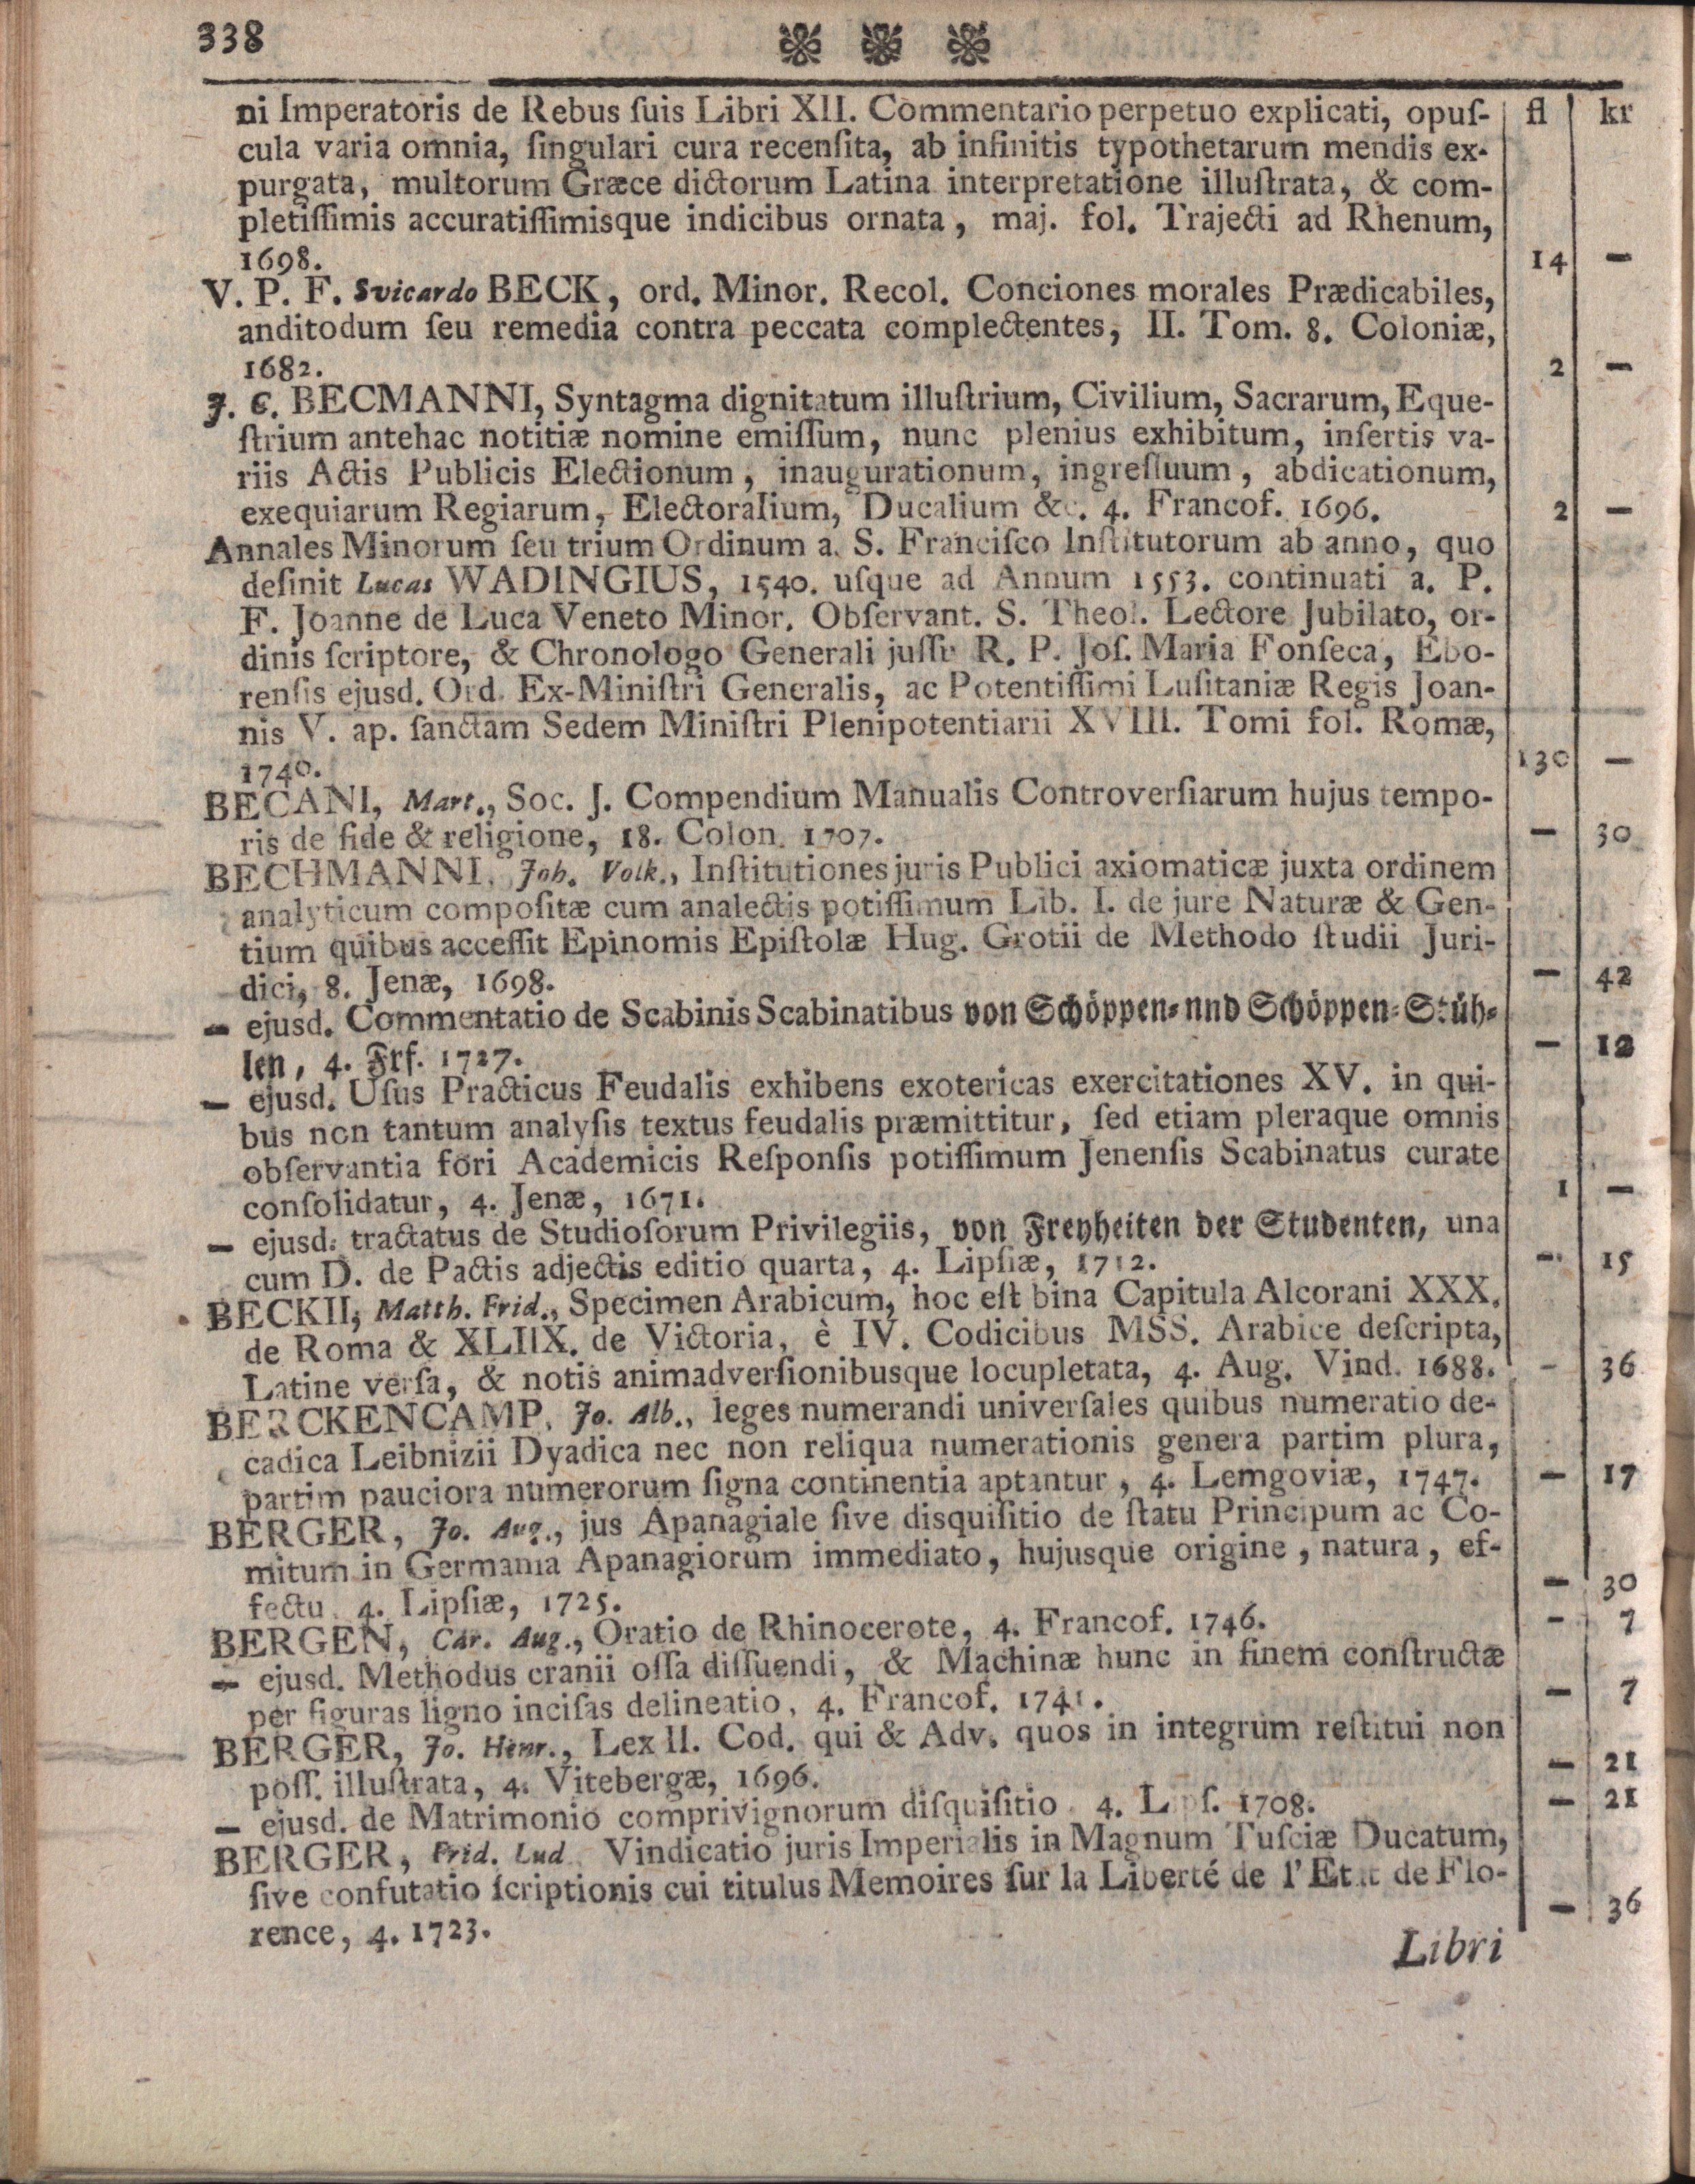 338
ni Imperatoris de Rebus ſuis Libri XII. Commentario perpetuo explicati, opuſ- fl kr
cula varia omnia, ſingulari cura recenſita, ab infinitis typothetarum mendis ex-
purgata, multorum Græce dictorum Latina interpretatione illuſtrata, & com-
pletiſſimis accuratiſſimisque indicibus ornata, maj. fol. Trajecti ad Rhenum,
1698. 14 —
V. P. F. Svicardo BECK, ord. Minor. Recol. Conciones morales Prædicabiles,
anditodum ſeu remedia contra peccata complectentes, II. Tom. 8. Coloniæ,
1682. 2 —
J. C. BECMANNI, Syntagma dignitatum illuſtrium, Civilium, Sacrarum, Eque-
ſtrium antehac notitiæ nomine emiſſum, nunc plenius exhibitum, inſertis va-
riis Actis Publicis Electionum, inaugurationum, ingreſſuum, abdicationum,
exequiarum Regiarum, Electoralium, Ducalium &c. 4. Francof. 1696. 2 —
Annales Minorum ſeu trium Ordinum a. S. Franciſco Inſtitutorum ab anno, quo
deſinit Lucas WADINGIUS, 1540. uſque ad Annum 1553. continuati a. P.
F. Joanne de Luca Veneto Minor. Obſervant. S. Theol. Lectore Jubilato, or-
dinis ſcriptore, & Chronologo Generali juſſu R. P. Joſ. Maria Fonſeca, Ebo-
renſis ejusd. Ord. Ex-Miniſtri Generalis, ac Potentiſſimi Luſitaniæ Regis Joan-
nis V. ap. ſanctam Sedem Miniſtri Plenipotentiarii XVIII. Tomi fol. Romæ,
1740. 130 —
BECANI, Mart., Soc. J. Compendium Manualis Controverſiarum hujus tempo-
ris de fide & religione, 18. Colon. 1707. — 30
BECHMANNI, Joh. Volk., Inſtitutiones juris Publici axiomaticæ juxta ordinem
analyticum compoſitæ cum analectis potiſſimum Lib. I. de jure Naturæ & Gen-
tium quibus acceſſit Epinomis Epiſtolæ Hug. Grotii de Methodo ſtudii Juri-
dici, 8. Jenæ, 1698. — 42
— ejusd. Commentatio de Scabinis Scabinatibus von Schöppen- nnd Schöppen-Stüh-
len, 4. Frf. 1727. — 12
— ejusd. Uſus Practicus Feudalis exhibens exotericas exercitationes XV. in qui-
bus non tantum analyſis textus feudalis præmittitur, ſed etiam pleraque omnis
obſervantia fori Academicis Reſponſis potiſſimum Jenenſis Scabinatus curate
conſolidatur, 4. Jenæ, 1671. 1 —
— ejusd. tractatus de Studioſorum Privilegiis, von Freyheiten der Studenten, una
cum D. de Pactis adjectis editio quarta, 4. Lipſiæ, 1712. — 15
BECKII, Matth. Frid., Specimen Arabicum, hoc eſt bina Capitula Alcorani XXX.
de Roma & XLIIX. de Victoria, è IV. Codicibus MSS. Arabice deſcripta,
Latine verſa, & notis animadverſionibusque locupletata, 4. Aug. Vind. 1688. - 36
BERCKENCAMP, Jo. Alb., leges numerandi univerſales quibus numeratio de-
cadica Leibnizii Dyadica nec non reliqua numerationis genera partim plura,
partim pauciora numerorum ſigna continentia aptantur, 4. Lemgoviæ, 1747. — 17
BERGER, Jo. Aug., jus Apanagiale ſive disquiſitio de ſtatu Principum ac Co-
mitum in Germania Apanagiorum immediato, hujusque origine, natura, ef-
fectu, 4. Lipſiæ, 1725. — 30
BERGEN, Car. Aug., Oratio de Rhinocerote, 4. Francof. 1746. - 7
— ejusd. Methodus cranii oſſa diſſuendi, & Machinæ hunc in finem conſtructæ
per figuras ligno inciſas delineatio, 4. Francof. 1741. — 7
BERGER, Jo. Henr., Lex II. Cod. qui & Adv. quos in integrum reſtitui non
poſſ. illuſtrata, 4. Vitebergæ, 1696. — 21
— ejusd. de Matrimonio comprivignorum diſquiſitio. 4. Lipſ. 1708. — 21
BERGER, Frid. Lud. Vindicatio juris Imperialis in Magnum Tuſciæ Ducatum,
ſive confutatio ſcriptionis cui titulus Memoires ſur la Liberté de l'Etat de Flo-
rence, 4. 1723. — 36
Libri